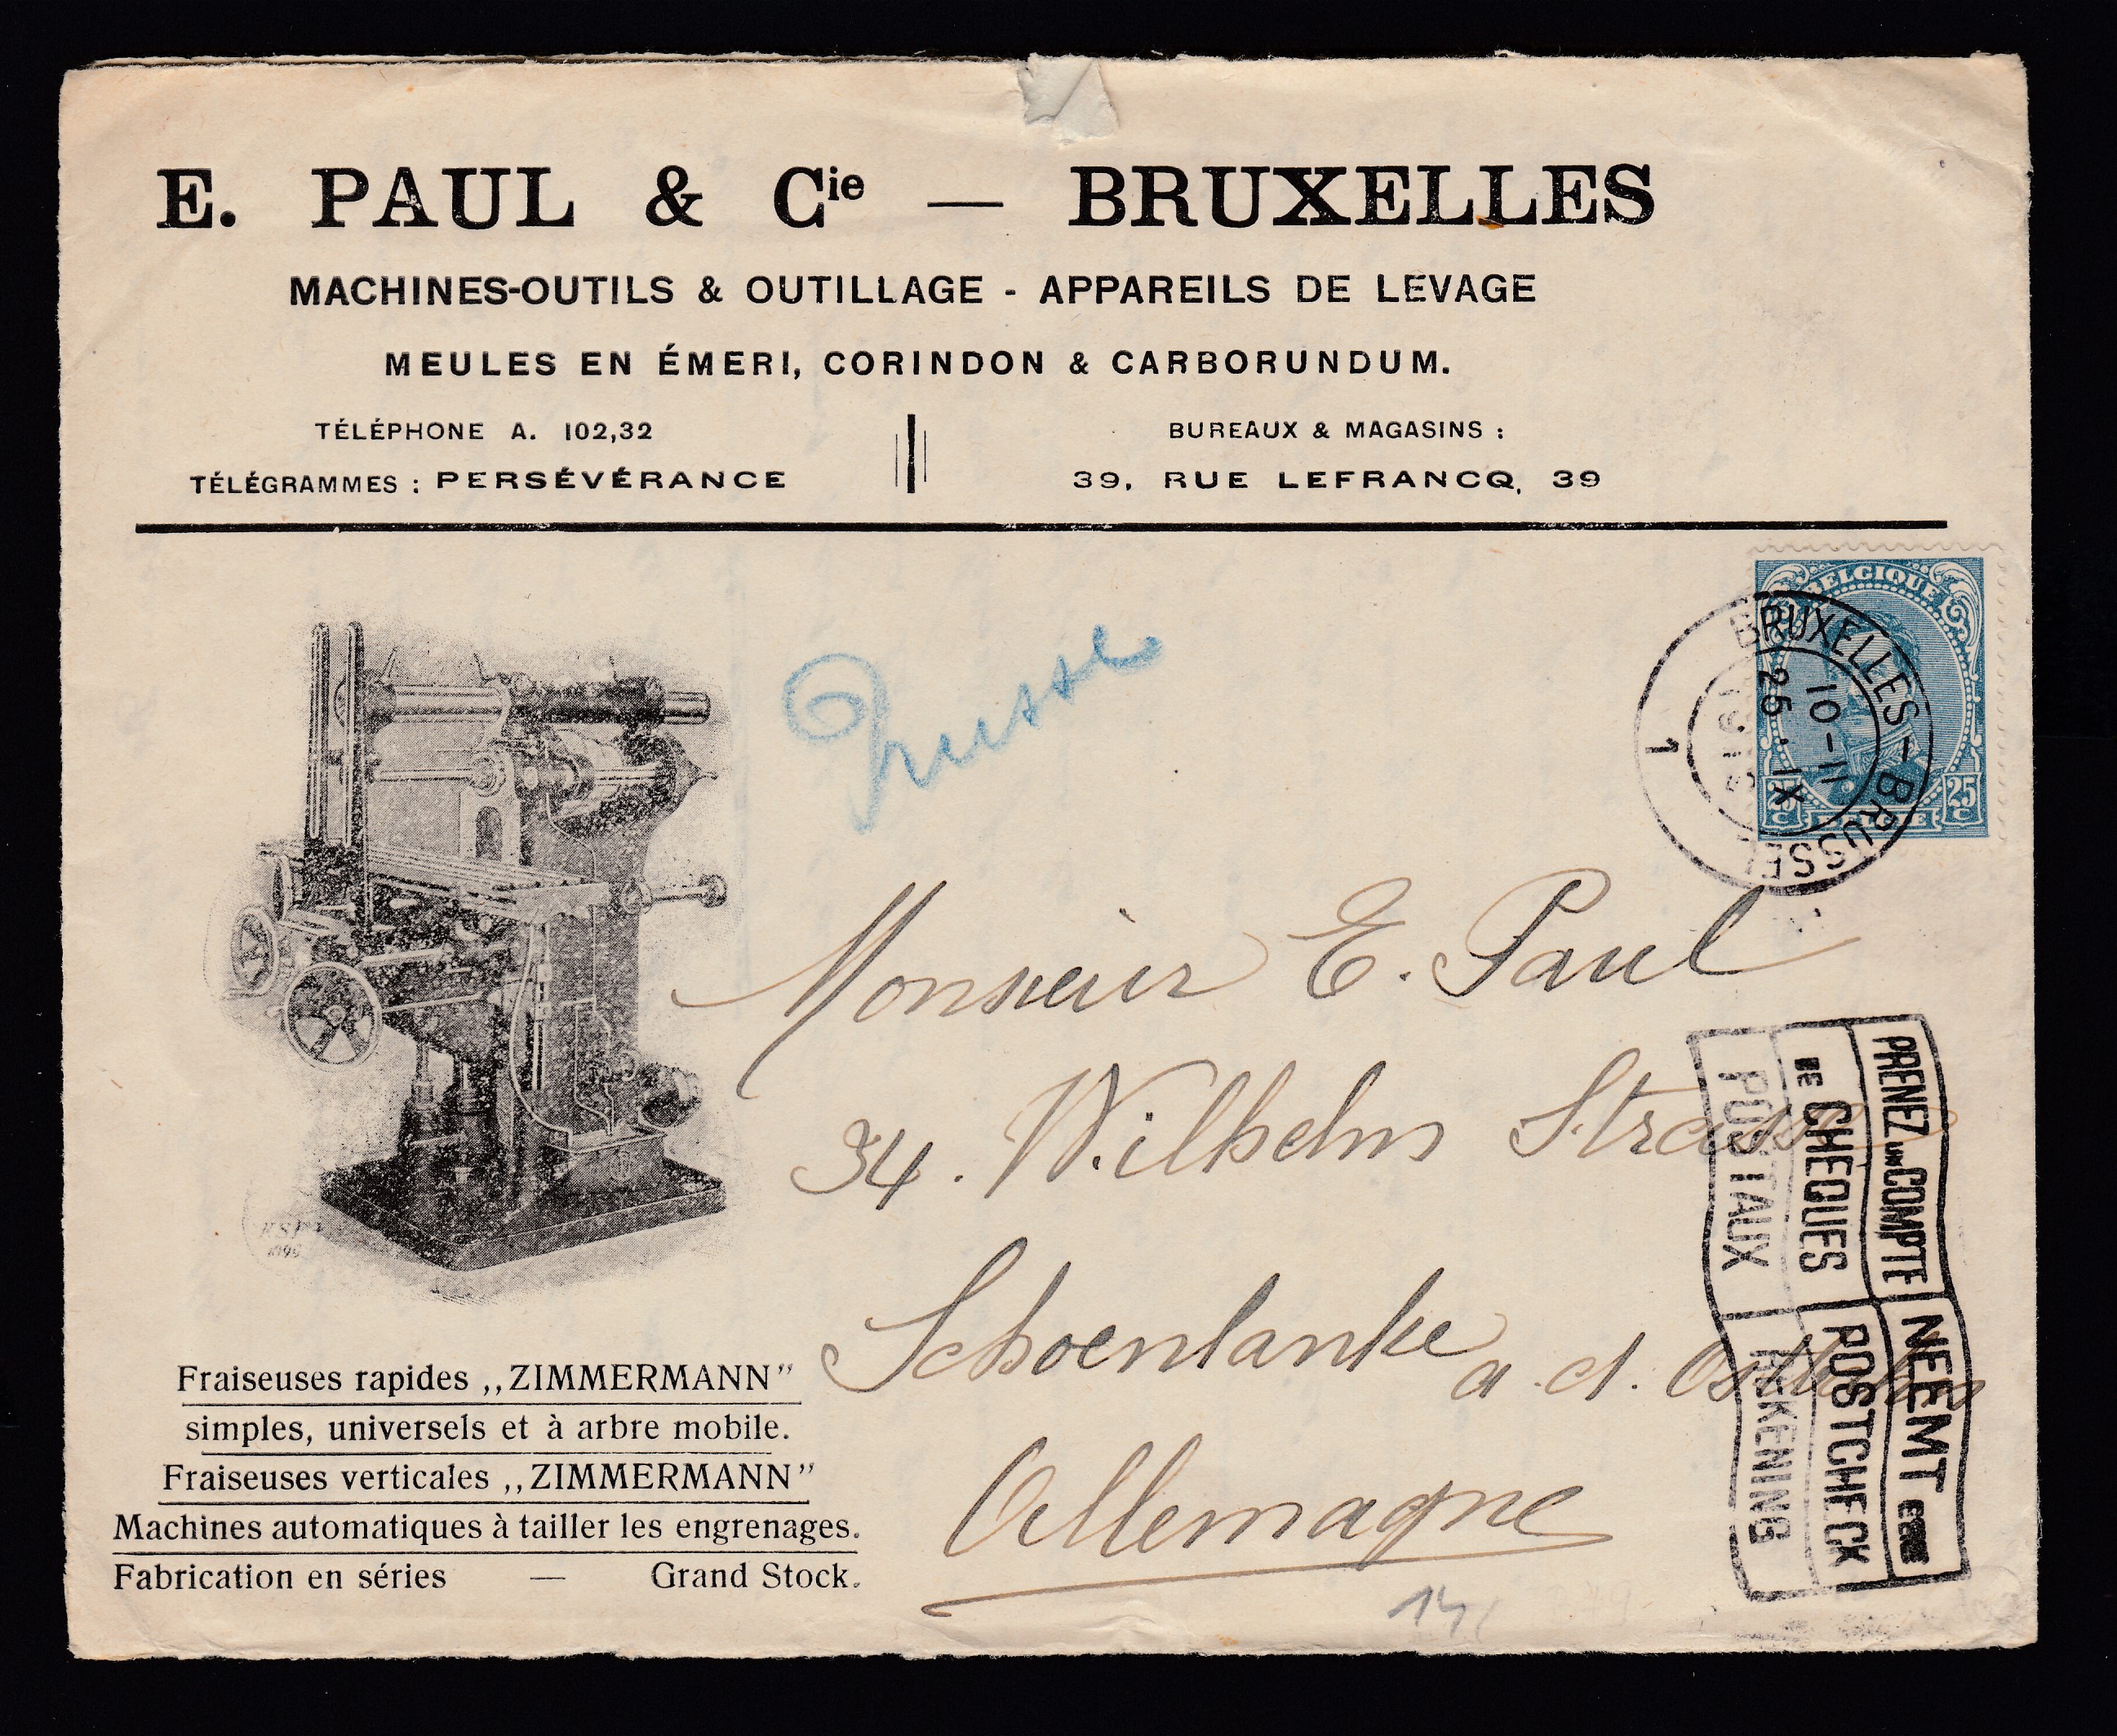 E. PAUL & Cie — BRUXELLES
MACHINES-OUTILS & OUTILLAGE - APPAREILS DE LEVAGE
MEULES EN ÉMERI, CORINDON & CARBORUNDUM.
TÉLÉPHONE A. 102,32
TÉLÉGRAMMES : PERSÉVÉRANCE
BUREAUX & MAGASINS :
39, RUE LEFRANCQ, 39
BELGIQUE
25 C
BELGIE
BRUXELLES - BRUSSEL
10-11
25 . IX
1
Prusse
Monsieur E. Paul
34. Wilhelm Strasse
Schoenlanke a. d. Ostbahn
Allemagne
PRENEZ UN COMPTE
DE CHEQUES
POSTAUX
NEEMT EENE
POSTCHECK
REKENING
Fraiseuses rapides ,,ZIMMERMANN”
simples, universels et à arbre mobile.
Fraiseuses verticales ,,ZIMMERMANN”
Machines automatiques à tailler les engrenages.
Fabrication en séries — Grand Stock.